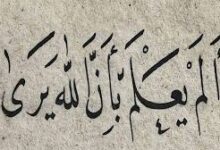 أَلَمْ يَعْلَمْ بِأَنَّ اللّٰهَ يَرَىٰ